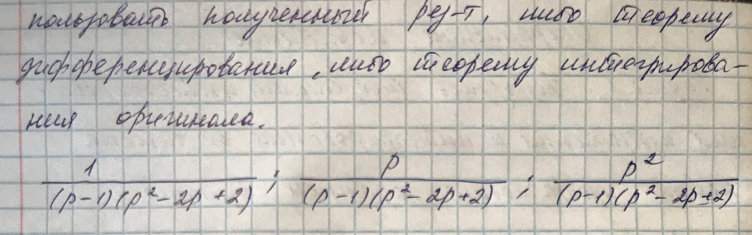 пользовать полученный рез-т, либо теорему
дифференцирования, либо теорему интегрирова-
ния оригинала.
1/((p-1)(p²-2p+2)) ; p/((p-1)(p²-2p+2)) ; p²/((p-1)(p²-2p+2))